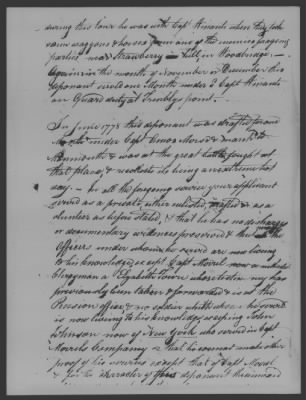 during this tour he was with Capt Winants when they took
some waggons & horses from one of the enemies foraging
parties near Strawberry Hill in Woodbridge.
Again in the month of November or December this
deponant served one Month under Capt Winants
on Guard duty at Trembly's point.
In June 1778 this deponant was drafted for one
Month under Capt Amos Morse & march'd to
Monmouth & was at the great battle fought at
that place & recollects its being an extreme hot
day. — In all the forgoing service your applicant
served as a private either enlisted, drafted & as a
volunteer as before stated, & that he has no discharges
or documentary evidences preserved & that the
Officers under whom he served are none living
to his knowledge, except Capt Morrel now an
Clergyman at Elizabeth Town whose testimony has
previously been taken & forwarded to the
Pension office, & no soldier with whom he served
is now living to his knowledge, excepting John
Johnson now of New York who served in Capt
Morrels Company & that he cannot make other
proof of his services except that of Capt Morrel
& for the character of this deponant